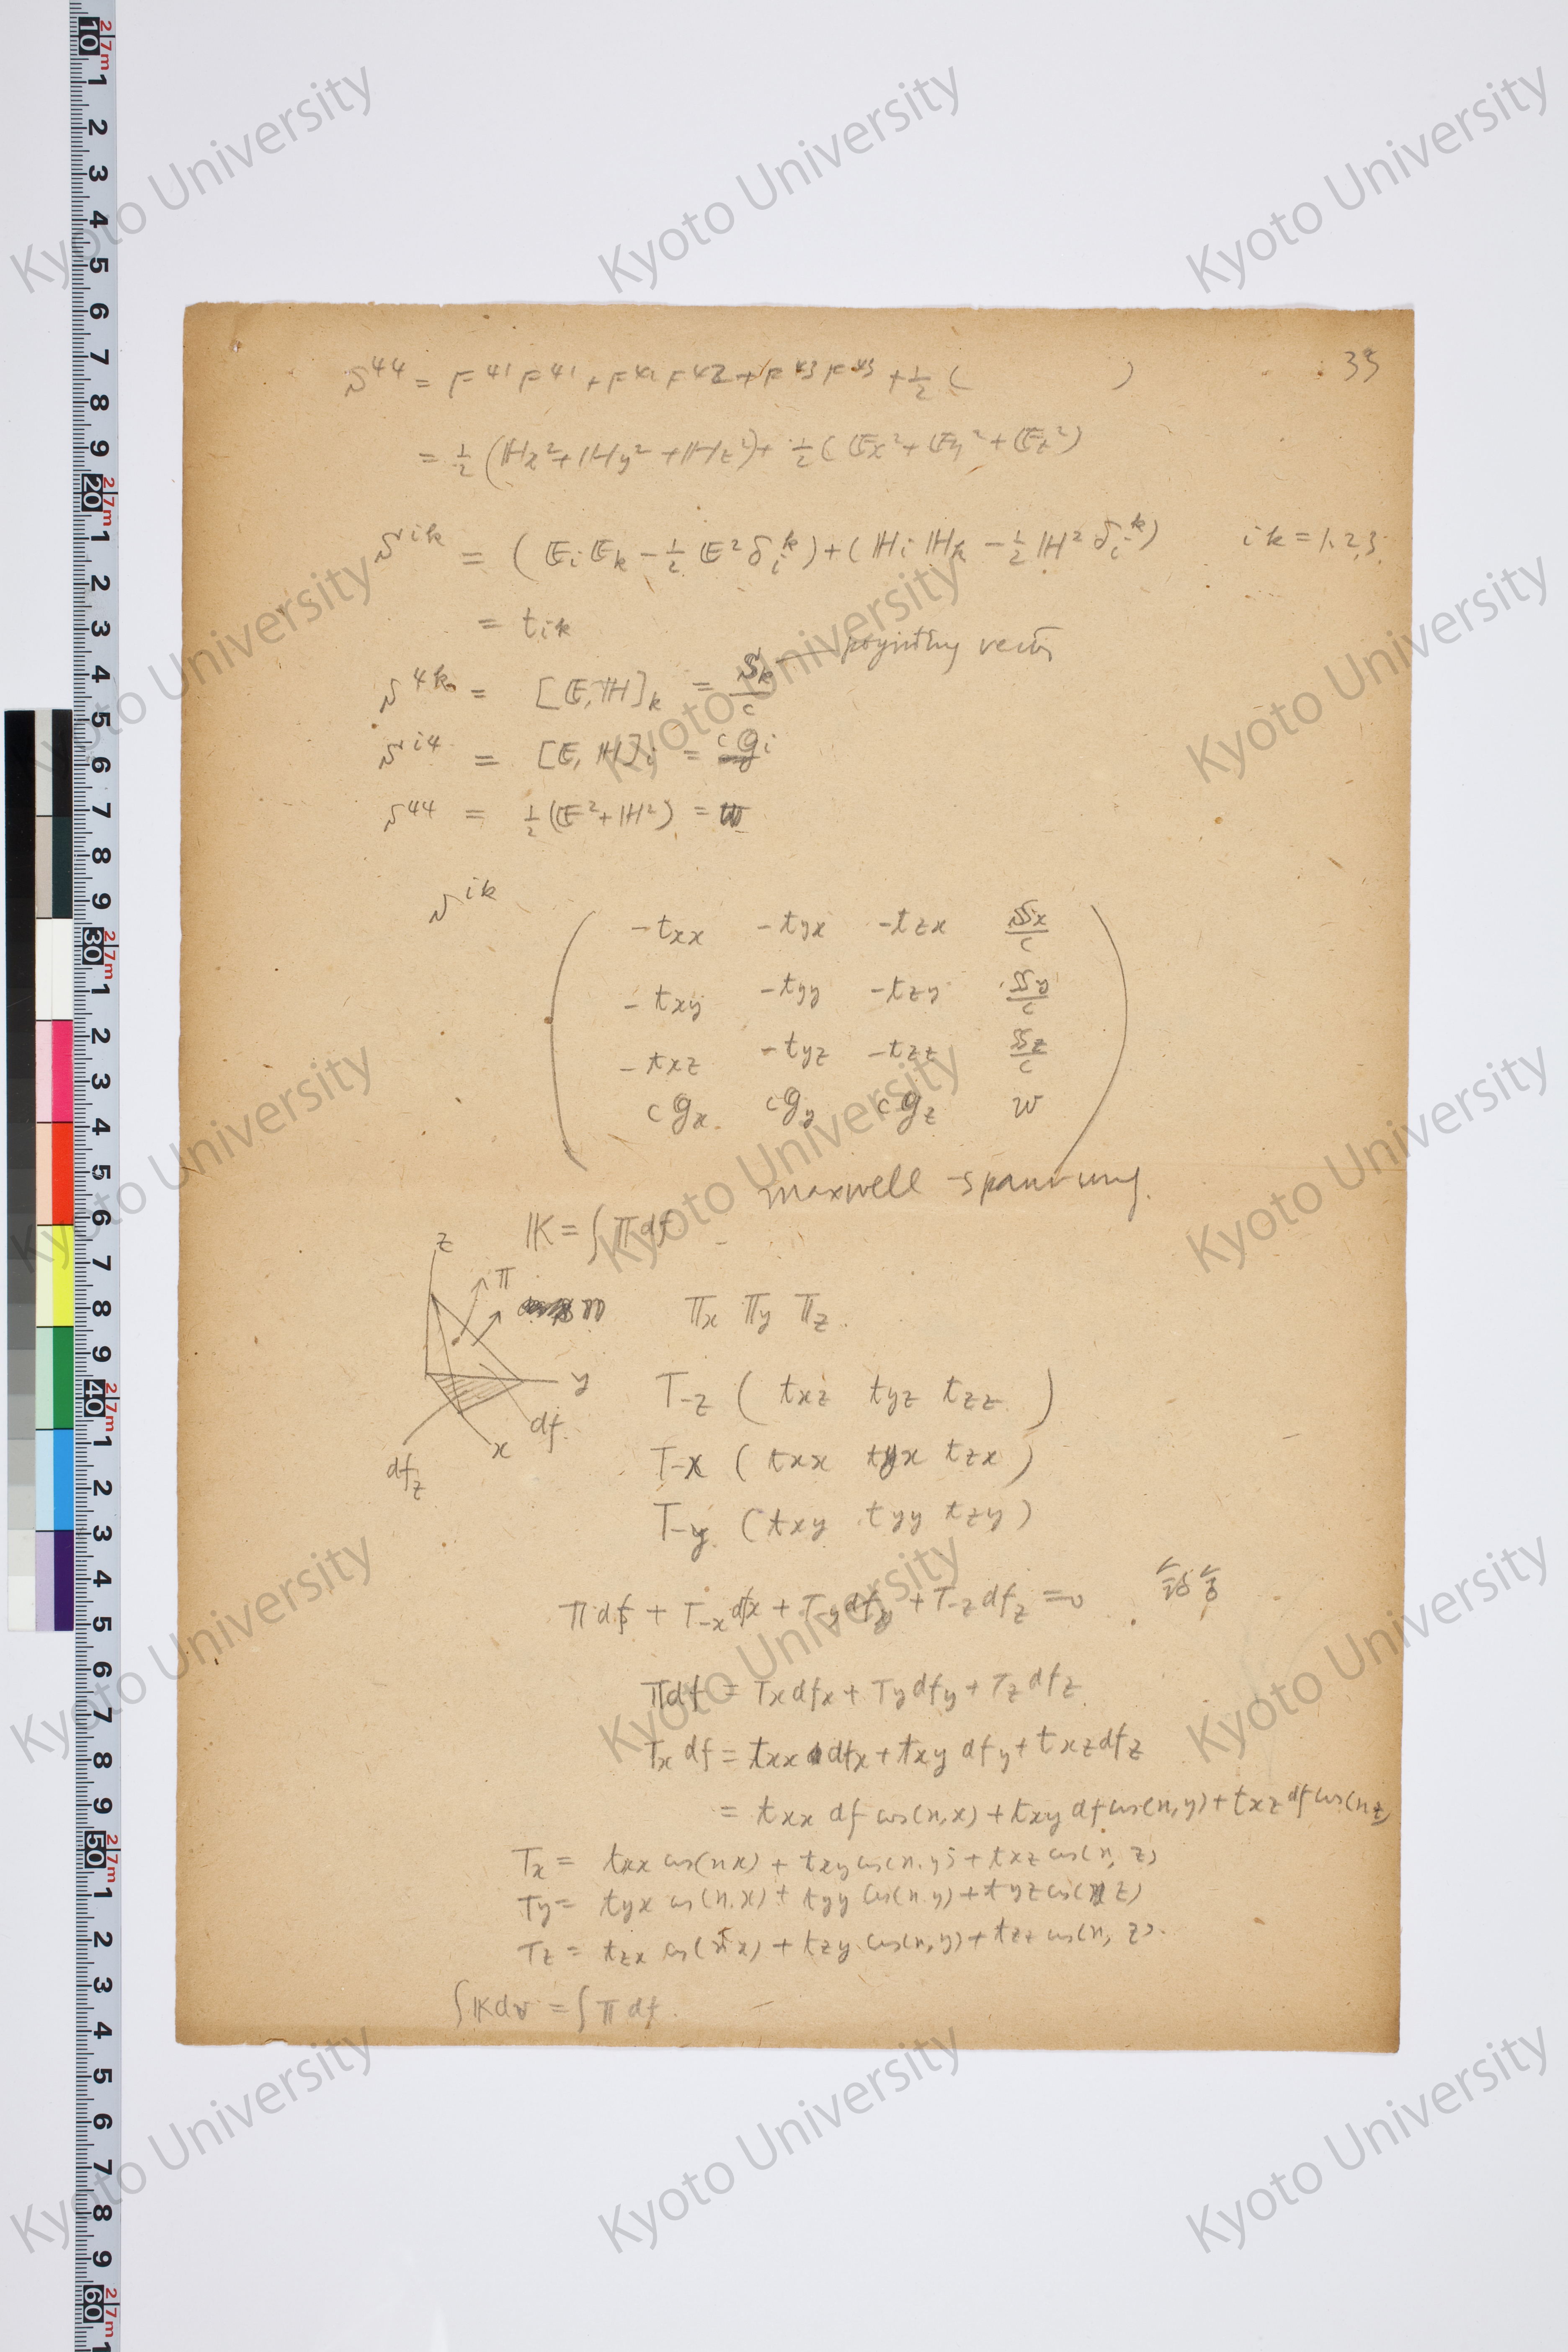 35
S⁴⁴ = F⁴¹F⁴¹ + F⁴²F⁴² + F⁴³F⁴³ + ½ (          )
= ½ (ℍx² + ℍy² + ℍz²) + ½ (𝔼x² + 𝔼y² + 𝔼z²)
Sⁱᵏ = (𝔼i 𝔼k − ½ 𝔼² δᵢᵏ) + (ℍi ℍk − ½ ℍ² δᵢᵏ)   i k = 1. 2. 3.
= tik
S⁴ᵏ = [𝔼, ℍ]k = 𝕊k/c — poynting vector
Sⁱ⁴ = [𝔼, ℍ]i = c𝕘i
S⁴⁴ = ½ (𝔼² + ℍ²) = w
Sⁱᵏ
( −txx −tyx −tzx 𝕊x/c
−txy −tyy −tzy 𝕊y/c
−txz −tyz −tzz 𝕊z/c
c𝕘x c𝕘y c𝕘z w )
maxwell spannung.
𝕂 = ∫ 𝕋 df
z
𝕋
𝕟
y
df
x
dfz
𝕋x 𝕋y 𝕋z.
T−z ( txz tyz tzz )
T−x ( txx tyx tzx )
T−y ( txy tyy tzy )
𝕋 df + T−x dfx + T−y dfy + T−z dfz = 0
𝕋df = Tx dfx + Ty dfy + Tz dfz
Tx df = txx dfx + txy dfy + txz dfz
= txx df cos(n,x) + txy df cos(n,y) + txz df cos(n z)
Tx = txx cos(n x) + txy cos(n.y) + txz cos(n, z)
Ty = tyx cos(n.x) + tyy cos(n.y) + tyz cos(n z)
Tz = tzx cos(n x) + tzy cos(n,y) + tzz cos(n, z).
∫ 𝕂dv = ∫ 𝕋 df.
Kyoto University